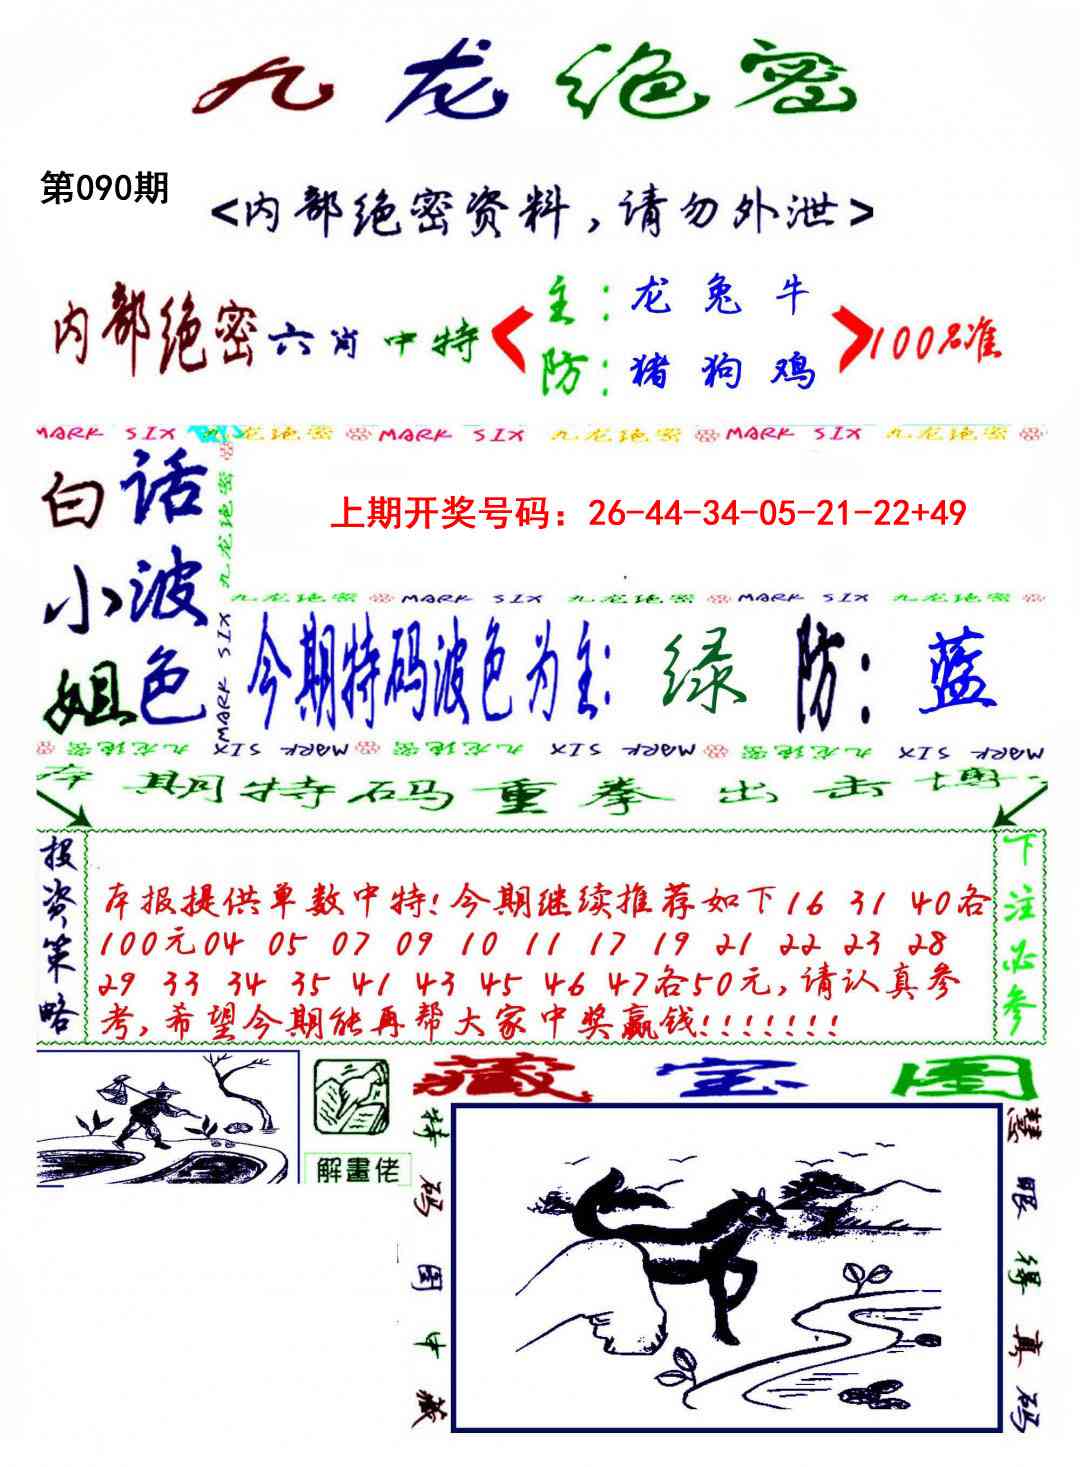 九龙绝密
第090期
<内部绝密资料,请勿外泄>
内部绝密六肖中特
主:龙 兔 牛
防:猪 狗 鸡
100%准
MARK SIX 九龙绝密 MARK SIX 九龙绝密 MARK SIX 九龙绝密
白话
小波
姐色
九龙绝密
MARK SIX
上期开奖号码：26-44-34-05-21-22+49
九龙绝密 MARK SIX 九龙绝密 MARK SIX 九龙绝密
今期特码波色为主:绿 防:蓝
九龙绝密 MARK SIX 九龙绝密 MARK SIX 九龙绝密 MARK SIX
本期特码重拳出击博
投资策略
本报提供单数中特!今期继续推荐如下16 31 40各
100元04 05 07 09 10 11 17 19 21 22 23 28
29 33 34 35 41 43 45 46 47各50元,请认真参
考,希望今期能再帮大家中奖赢钱!!!!!!!
下注必参
解畫佬
藏宝图
特码图中藏
慧眼得真码